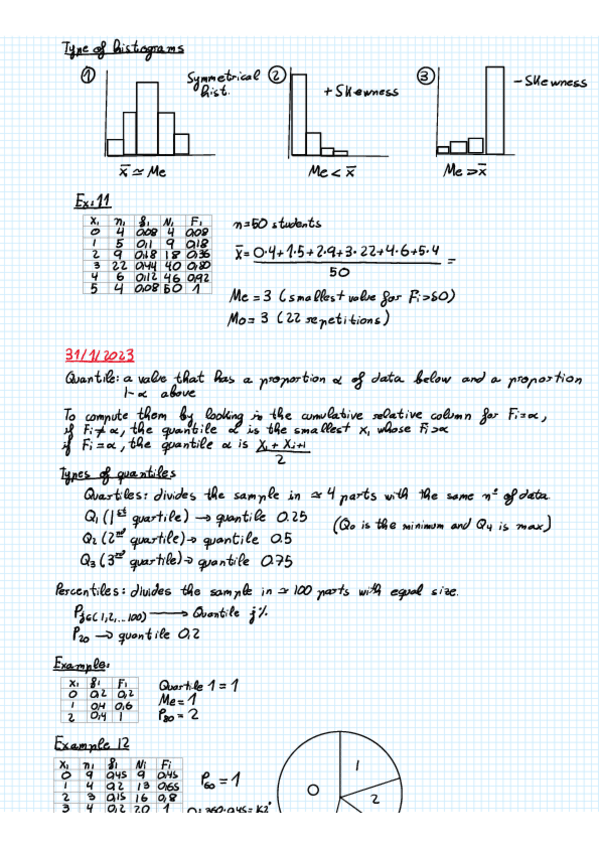 Type of histograms
① Symmetrical hist. ② + Skewness ③ - Skewness
x̄ ≃ Me Me < x̄ Me > x̄
Ex. 11
xᵢ nᵢ fᵢ Nᵢ Fᵢ
0 4 0,08 4 0,08
1 5 0,1 9 0,18
2 9 0,18 18 0,36
3 22 0,44 40 0,80
4 6 0,12 46 0,92
5 4 0,08 50 1
n=50 students
x̄ = 0·4+1·5+2·9+3·22+4·6+5·4 / 50 =
Me = 3 (smallest value for Fi>50)
Mo = 3 (22 repetitions)
31/1/2023
Quantile: a value that has a proportion α of data below and a proportion
1-α above
To compute them by looking in the cumulative relative column for Fi=α,
if Fi≠α, the quantile α is the smallest xᵢ whose Fi>α
if Fi=α, the quantile α is Xi + Xi+1 / 2
Types of quantiles
Quartiles: divides the sample in ≃ 4 parts with the same nº of data
Q₁ (1st quartile) → quantile 0.25
(Q₀ is the minimum and Q₄ is max)
Q₂ (2nd quartile) → quantile 0.5
Q₃ (3rd quartile) → quantile 0.75
Percentiles: divides the sample in ≃ 100 parts with equal size.
Pj∈(1,2,...100) → Quantile j%
P₂₀ → quantile 0,2
Example:
xᵢ fᵢ Fᵢ
0 0,2 0,2
1 0,4 0,6
2 0,4 1
Quartile 1 = 1
Me = 1
P₈₀ = 2
Example 12
xᵢ nᵢ fᵢ Nᵢ Fi
0 9 0,45 9 0,45
1 4 0,2 13 0,65
2 3 0,15 16 0,8
3 4 0,2 20 1
P₆₀ = 1
0 1 2